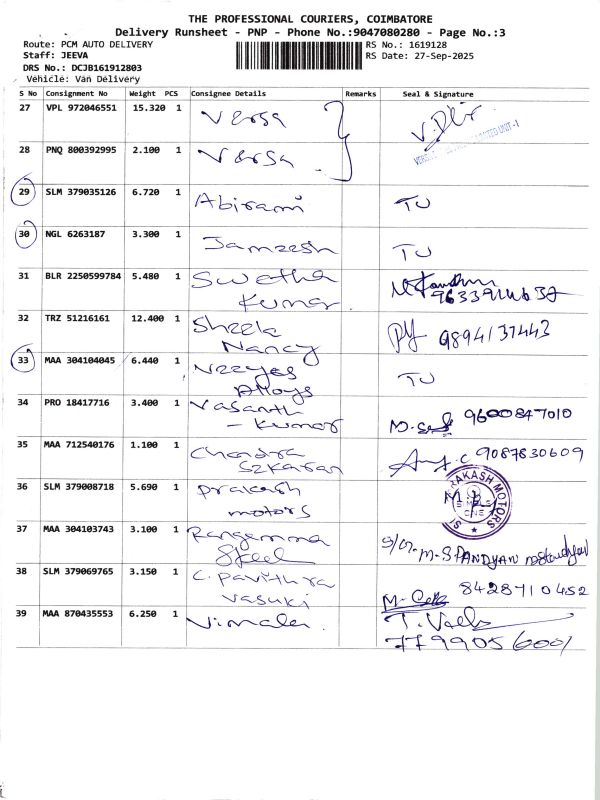 THE PROFESSIONAL COURIERS, COIMBATORE
Delivery Runsheet - PNP - Phone No.:9047080280 - Page No.:3
Route: PCM AUTO DELIVERY
Staff: JEEVA
DRS No.: DCJB161912803
Vehicle: Van Delivery
RS No.: 1619128
RS Date: 27-Sep-2025
S No Consignment No Weight PCS Consignee Details Remarks Seal & Signature
27 VPL 972046551 15.320 1 Versa
28 PNQ 800392995 2.100 1 Versa
29 SLM 379035126 6.720 1 Abirami TU
30 NGL 6263187 3.300 1 Jamzesh TU
31 BLR 2250599784 5.480 1 Swetha
Kumar
32 TRZ 51216161 12.400 1 Sheela 9894137443
Nancy
33 MAA 304104045 6.440 1 Nzzyes TU
Alloys
34 PRO 18417716 3.400 1 Vasanth 9600847010
- Kumar
35 MAA 712540176 1.100 1 Chandra 9087830609
Szkaran
36 SLM 379008718 5.690 1 prakash
motors
PRAKASH MOTORS
37 MAA 304103743 3.100 1 Rangamma
Steel
S/O. M. S PANDYAN
38 SLM 379069765 3.150 1 C. Pavithra 8428710452
Vasuki
39 MAA 870435553 6.250 1 Vimala
7799056001